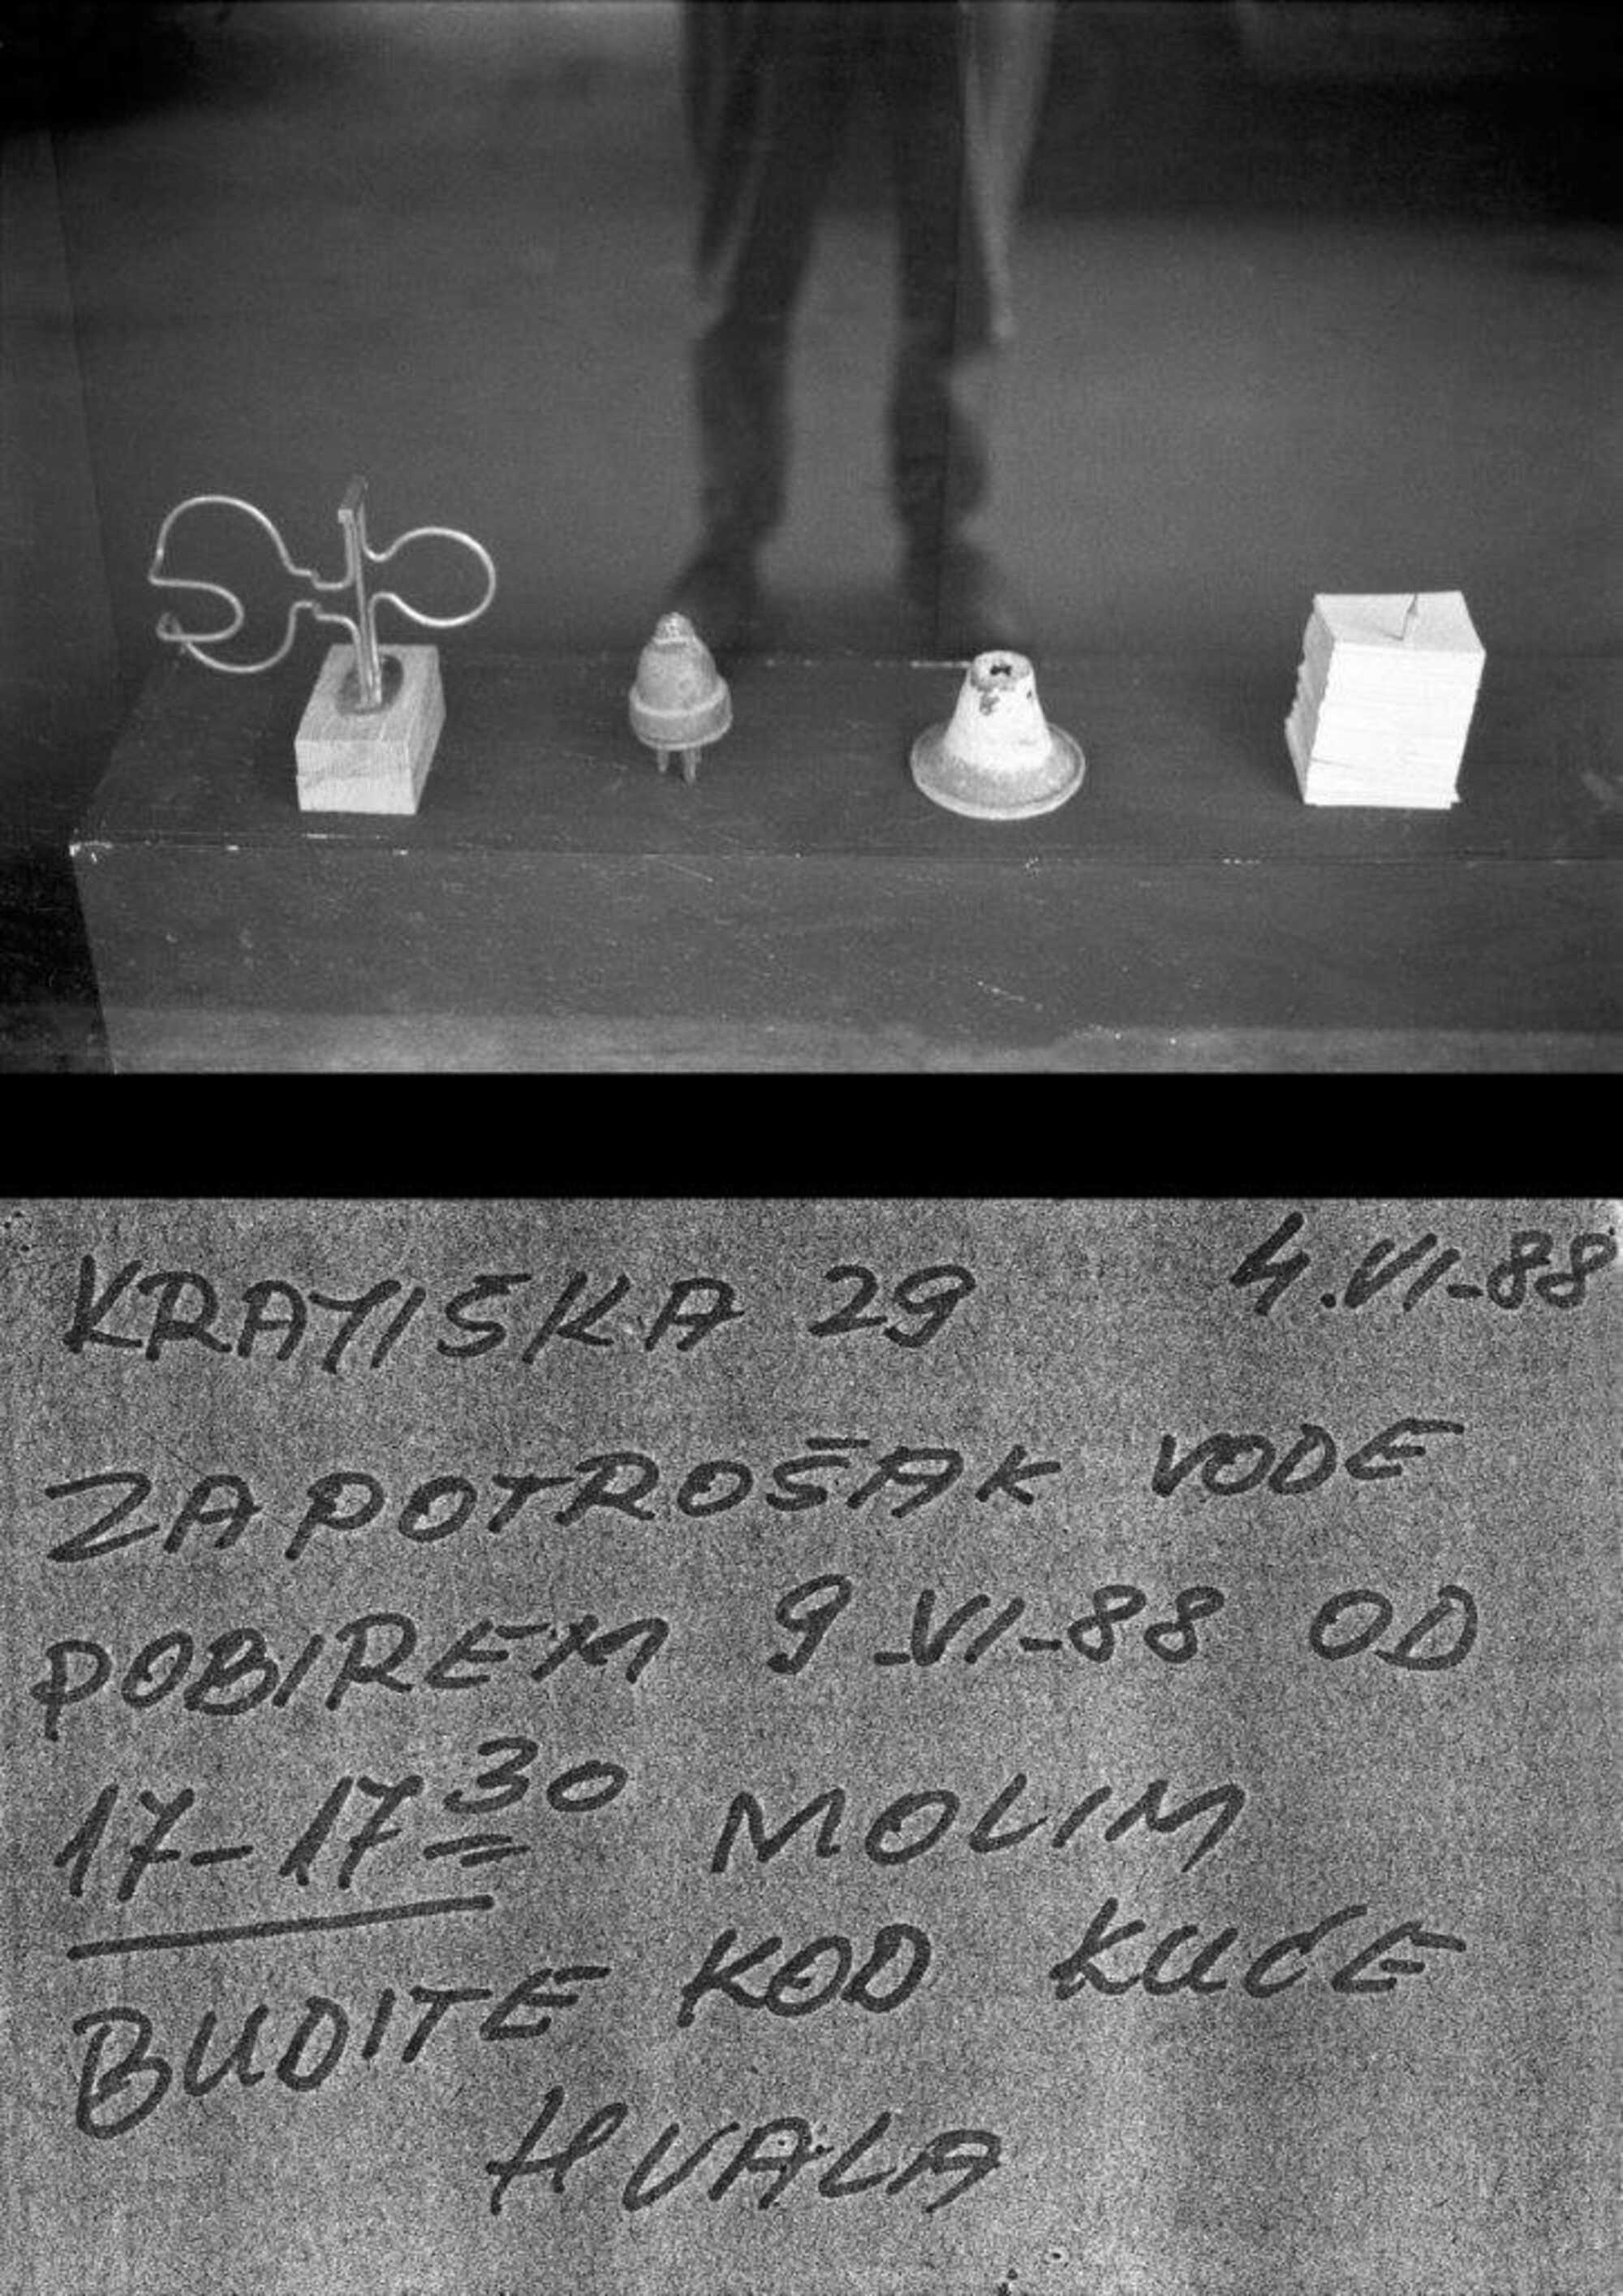 KRAJIŠKA 29 4.VI-88
ZAPOTROŠAK VODE
POBIREM 9.VI-88 OD
17-17 30 MOLIM
BUDITE KOD KUĆE
HVALA